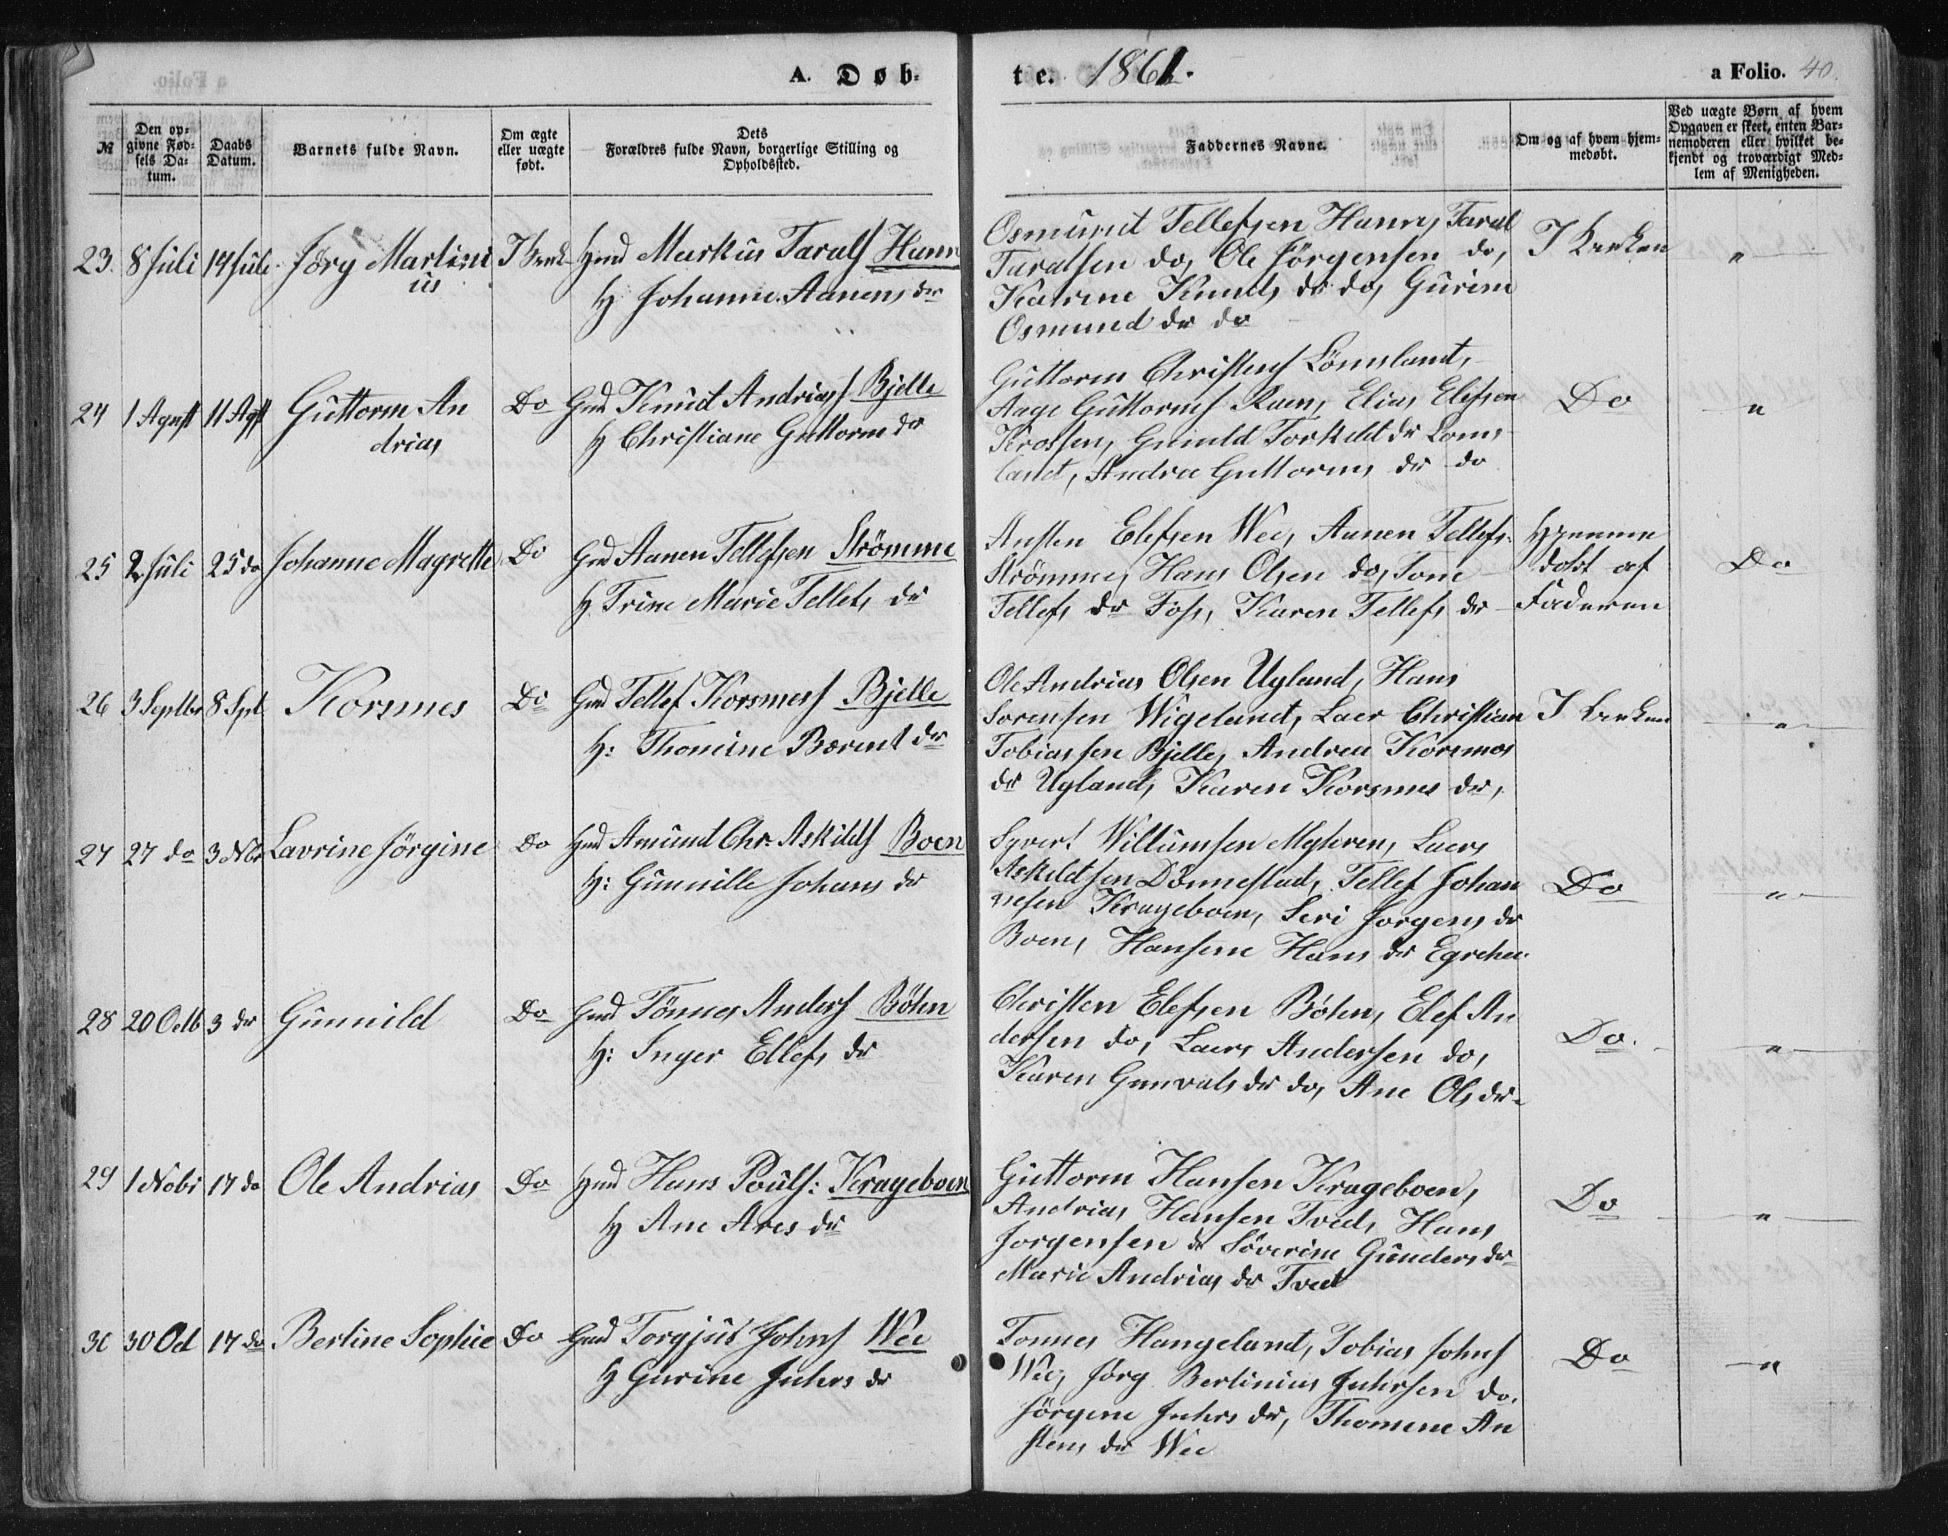 A. Døb-
te. 1861.
a Folio. 40.
№
Den op-
givne Fød-
sels Da-
tum.
Daabs
Datum.
Barnets fulde Navn.
Om ægte
eller uægte
født.
Dets
Forældres fulde Navn, borgerlige Stilling og
Opholdssted.
Faddernes Navne.
Om og af hvem hjem-
medøbt.
Ved uægte Børn af hvem
Opgaven er skeet, enten Bar-
nemoderen eller hvilket be-
kjendt og troværdigt Med-
lem af Menigheden.
23. 8 Juli 14 Juli Jörg Martini
us
Gmd Markus Taralfs Hamre
H Johanne Aanens dr
Osmund Tellefsen Hamre, Taral
Taralsen do, Ole Jörgensen do,
Katrine Knuds dr do, Gurine
Osmund dr do
I Kirken
"
24 1 Agust 11 Agst Guttorm An
drias
Do
Gmd Knud Andrias Bjelle
H Christiane Guttorm dr
Guttorm Christens Lömsland,
Aage Guttorms Ruen, Elias Elefsen
Krossen, Gunild Torkild dr Loms
land, Andrea Guttorms dr do
Do
"
25 2 Juli 25 do Johanne Magrette
Do
Gmd Aanen Tellefsen Strömme
H Trine Marie Tellefs dr
Ansten Elefsen Wee, Aanen Tellefs.
Strömme, Hans Olsen do, Tone
Tellefs dr Foss, Karen Tellefs dr
Hjemme
döbt af
Faderen
Do
26 3 Septbr 8 Spt Korsmes
Do
Gmd Tellef Korsmess Bjelle
H: Thomine Bærent dr
Ole Andrias Olsen Ugland, Hans
Sorensen Wigeland, Laer Christian
Tobiassen Bjelle, Andrea Korsmos
dr Ugland, Karen Korsmes dr,
I Kirken
"
27 27 do 3 Nbr Lavrine Jörgine
Do
Gmd Amund Chr. Askilds Boen
H: Gunnille Johans dr
Syvert Willumsen Myhren, Laers
Askildsen Dönnestad, Tellef Johan
nesen Krageboen, Seri Jorgens dr
Boen, Hansine Hans dr
Do
"
28 20 Octb 3 dr Gunnild
Do
Gmd Tönnes Anders Böhn
H: Inger Ellefs dr
Christen Elefsen Böhn, Elef An
dersen do, Laers Andersen do,
Karen Gunvals dr do, Ane Ols dr.
Do.
"
29 1 Nobr 17 do Ole Andrias
Do
Gmd Hans Pouls: Krageboen
H Ane Ares dr
Guttorm Hansen Krageboen,
Andrias Hansen Tved, Hans
Jorgensen dr Söverine Gunders dr
Marie Andrias dr Tved
Do
"
30 30 Oct 17 do Berline Sophie
Do
Gmd Torgjus Johns Wee
H Gurine Juhrs dr
Tonnes Haugeland, Tobias Johns
Wee, Jörg Berlinius Juhrsen do.
Jörgine Juhrs dr, Thomine An
stens dr Wee
Do
"